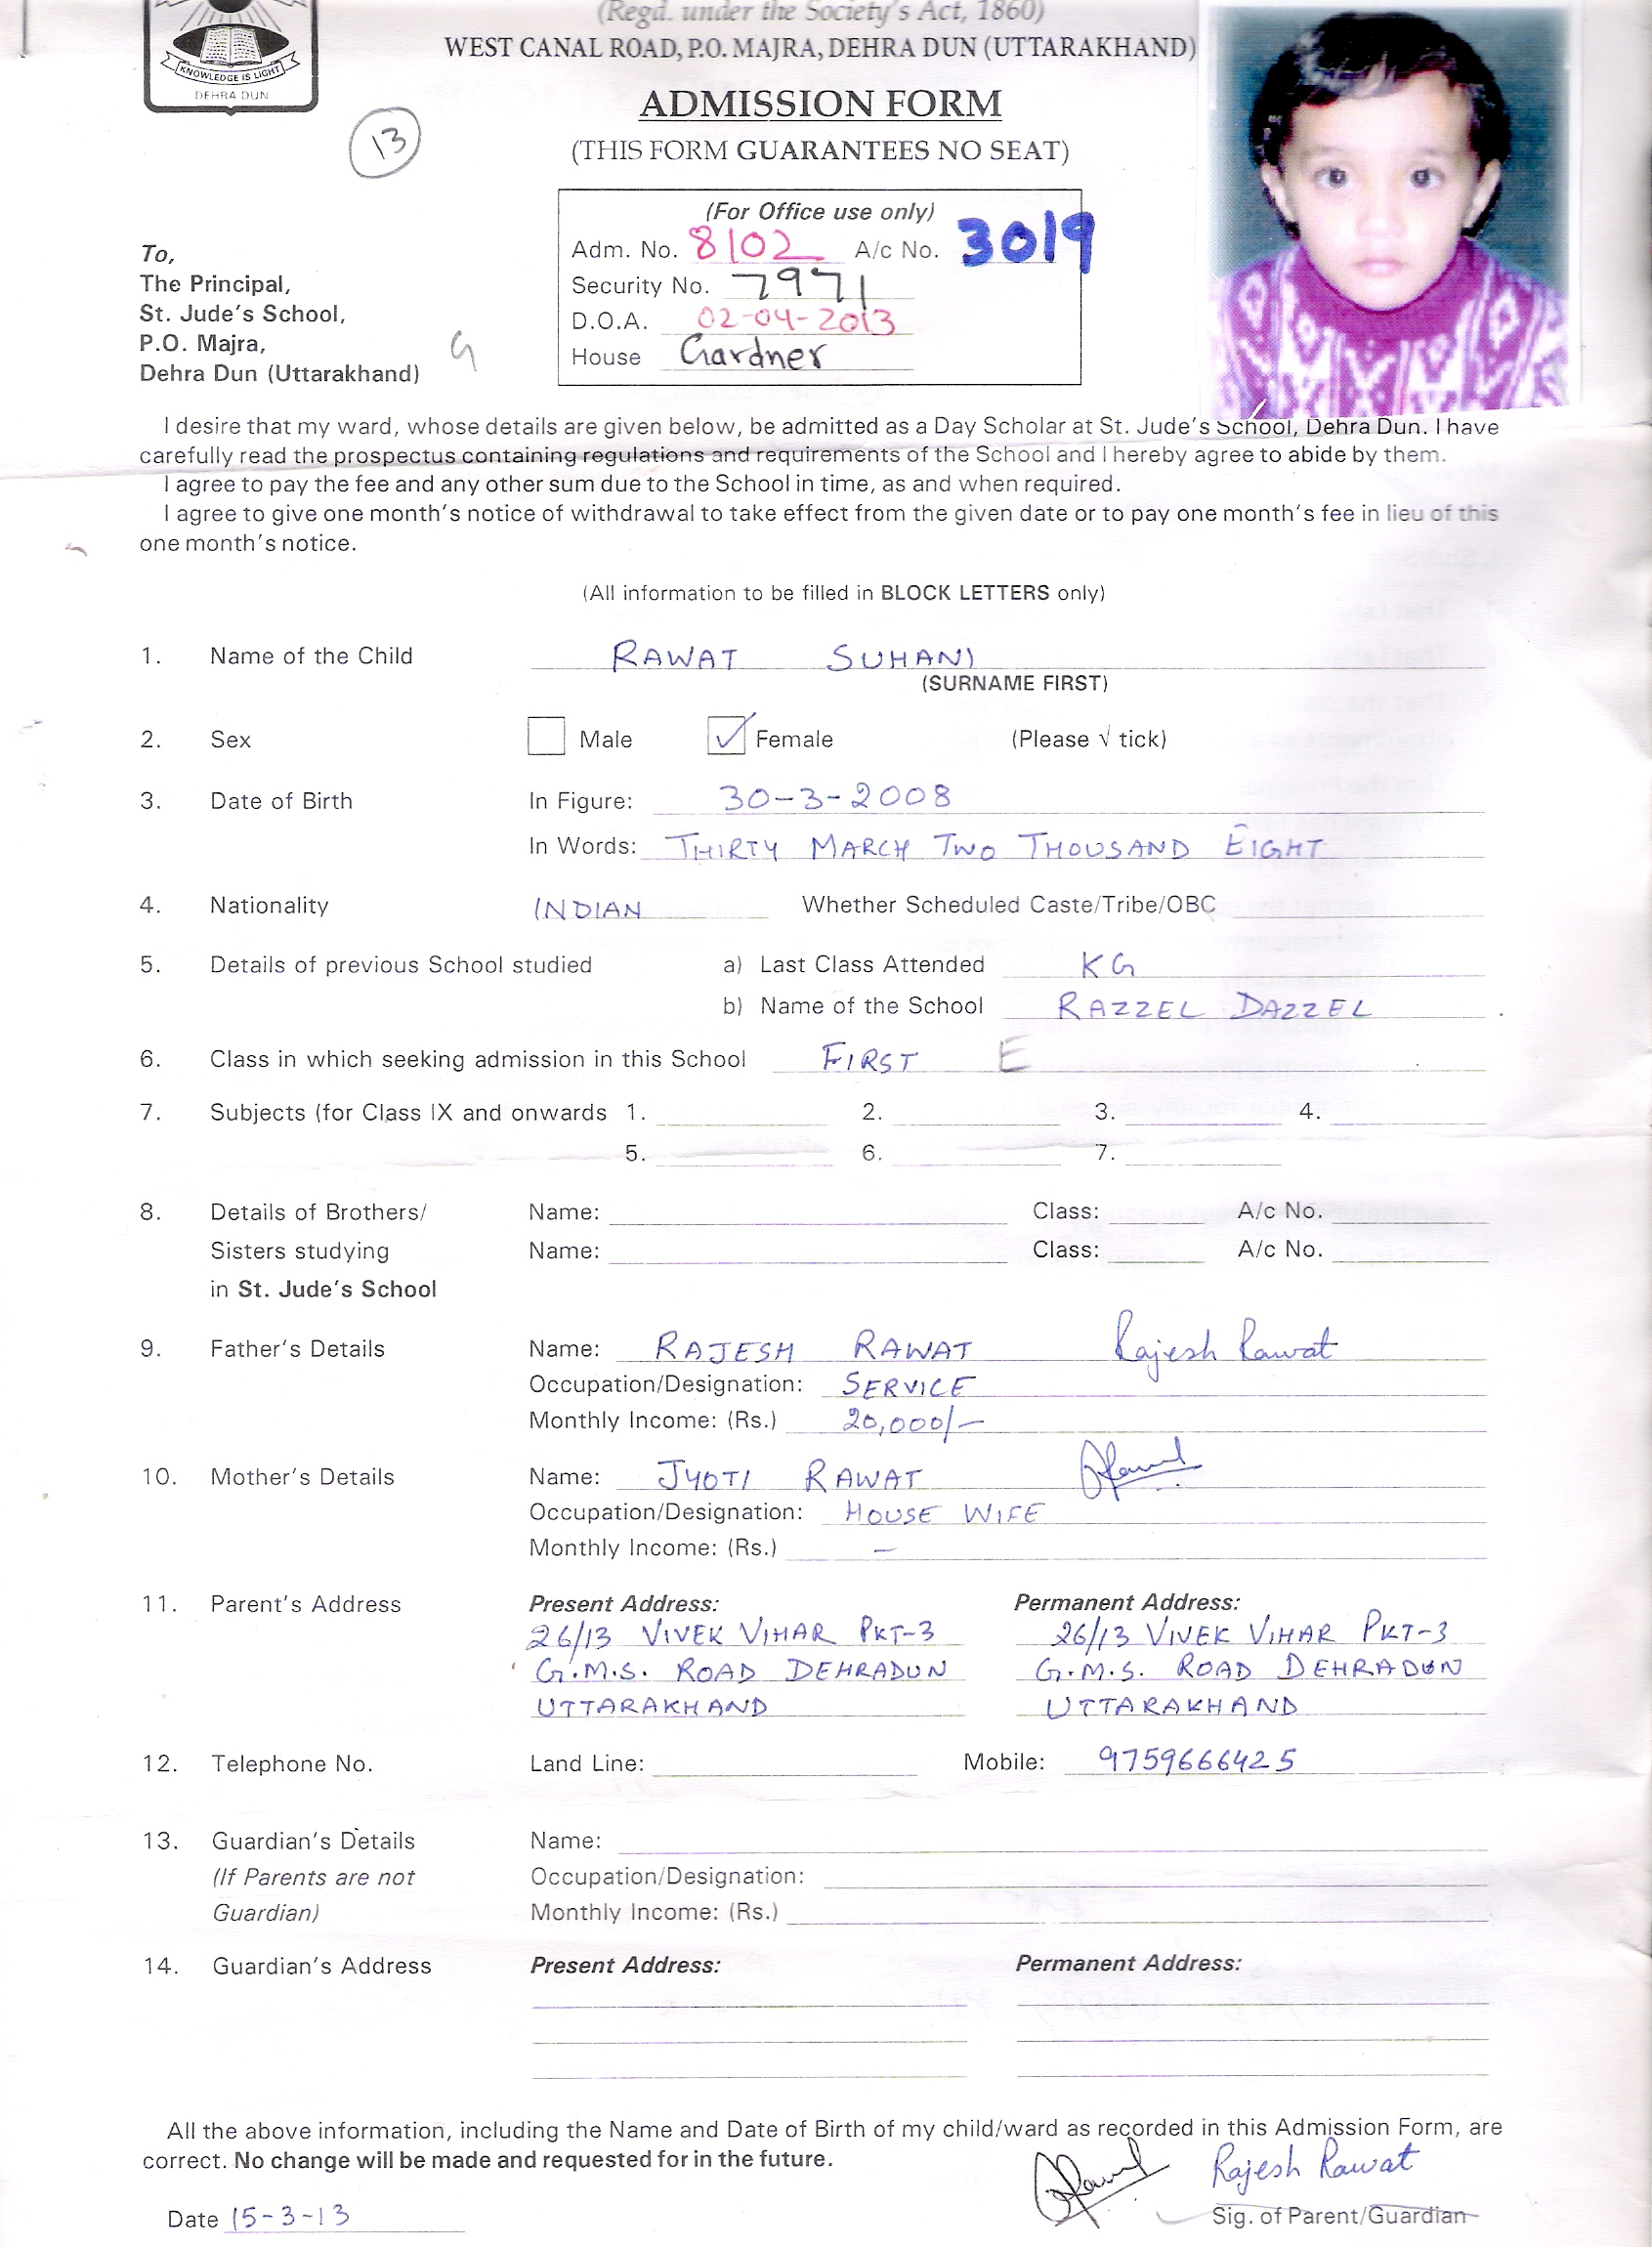 KNOWLEDGE IS LIGHT
DEHRA DUN
(Regd. under the Society's Act, 1860)
WEST CANAL ROAD, P.O. MAJRA, DEHRA DUN (UTTARAKHAND)
ADMISSION FORM
(THIS FORM GUARANTEES NO SEAT)
13
(For Office use only)
Adm. No. 8102 A/c No. 3019
Security No. 7971
D.O.A. 02-04-2013
House Gardner
To,
The Principal,
St. Jude's School,
P.O. Majra,
Dehra Dun (Uttarakhand)
G
I desire that my ward, whose details are given below, be admitted as a Day Scholar at St. Jude's School, Dehra Dun. I have
carefully read the prospectus containing regulations and requirements of the School and I hereby agree to abide by them.
I agree to pay the fee and any other sum due to the School in time, as and when required.
I agree to give one month's notice of withdrawal to take effect from the given date or to pay one month's fee in lieu of this
one month's notice.
(All information to be filled in BLOCK LETTERS only)
1. Name of the Child RAWAT SUHANI
(SURNAME FIRST)
2. Sex Male ✓ Female (Please √ tick)
3. Date of Birth In Figure: 30-3-2008
In Words: THIRTY MARCH TWO THOUSAND EIGHT
4. Nationality INDIAN Whether Scheduled Caste/Tribe/OBC
5. Details of previous School studied a) Last Class Attended KG
b) Name of the School RAZZEL DAZZEL
6. Class in which seeking admission in this School FIRST E
7. Subjects (for Class IX and onwards 1. 2. 3. 4.
5. 6. 7.
8. Details of Brothers/ Name: Class: A/c No.
Sisters studying Name: Class: A/c No.
in St. Jude's School
9. Father's Details Name: RAJESH RAWAT Rajesh Rawat
Occupation/Designation: SERVICE
Monthly Income: (Rs.) 20,000/-
10. Mother's Details Name: JYOTI RAWAT
Occupation/Designation: HOUSE WIFE
Monthly Income: (Rs.) -
11. Parent's Address Present Address: Permanent Address:
26/13 VIVEK VIHAR PKT-3 26/13 VIVEK VIHAR PKT-3
G.M.S. ROAD DEHRADUN G.M.S. ROAD DEHRADUN
UTTARAKHAND UTTARAKHAND
12. Telephone No. Land Line: Mobile: 9759666425
13. Guardian's Details Name:
(If Parents are not Occupation/Designation:
Guardian) Monthly Income: (Rs.)
14. Guardian's Address Present Address: Permanent Address:
All the above information, including the Name and Date of Birth of my child/ward as recorded in this Admission Form, are
correct. No change will be made and requested for in the future.
Rajesh Rawat
Date 15-3-13 Sig. of Parent/Guardian